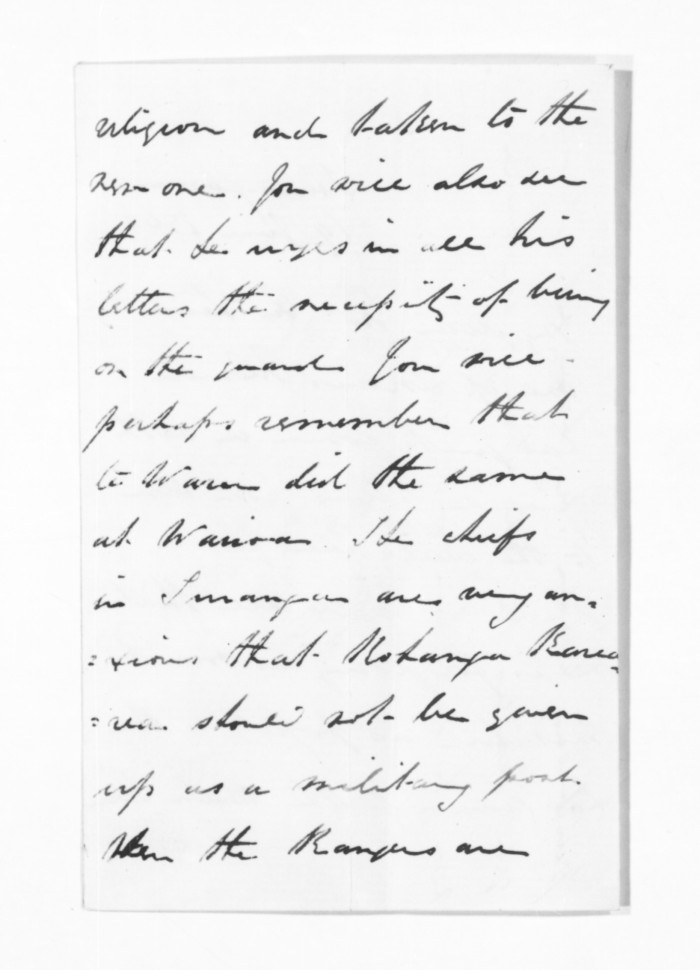 religion and taken to the
new one. You will also see
that he urges in all his
letters the necessity of being
on the guard. You will
perhaps remember that
te Waru did the same
at Wairoa. The chiefs
in Turanga are very an=
=xious that Kohanga Karea
=rea should not be given
up as a military post
When the Rangers are